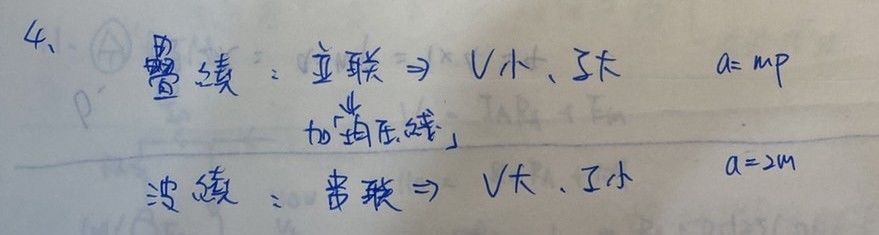 4、
疊繞：並联⇒ V小、I大 a=mp
↓
加「均压线」
波繞：串联⇒ V大、I小 a=2m